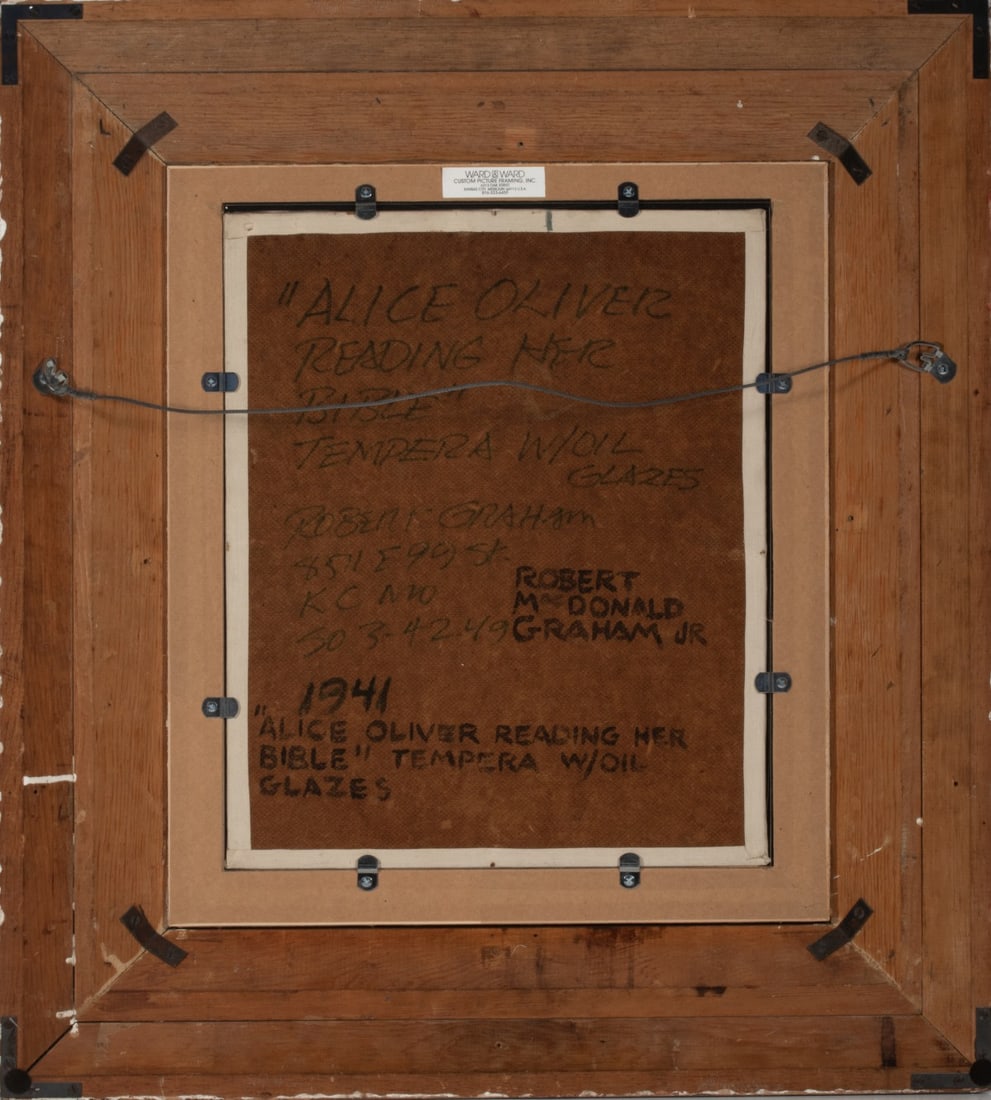 WARD & WARD
CUSTOM PICTURE FRAMING, INC.
"ALICE OLIVER
READING HER
BIBLE"
TEMPERA W/OIL
GLAZES
ROBERT GRAHAM
851 E 99 St
K C MO
SO 3-4249
ROBERT
MacDONALD
GRAHAM JR
1941
"ALICE OLIVER READING HER
BIBLE" TEMPERA W/OIL
GLAZES